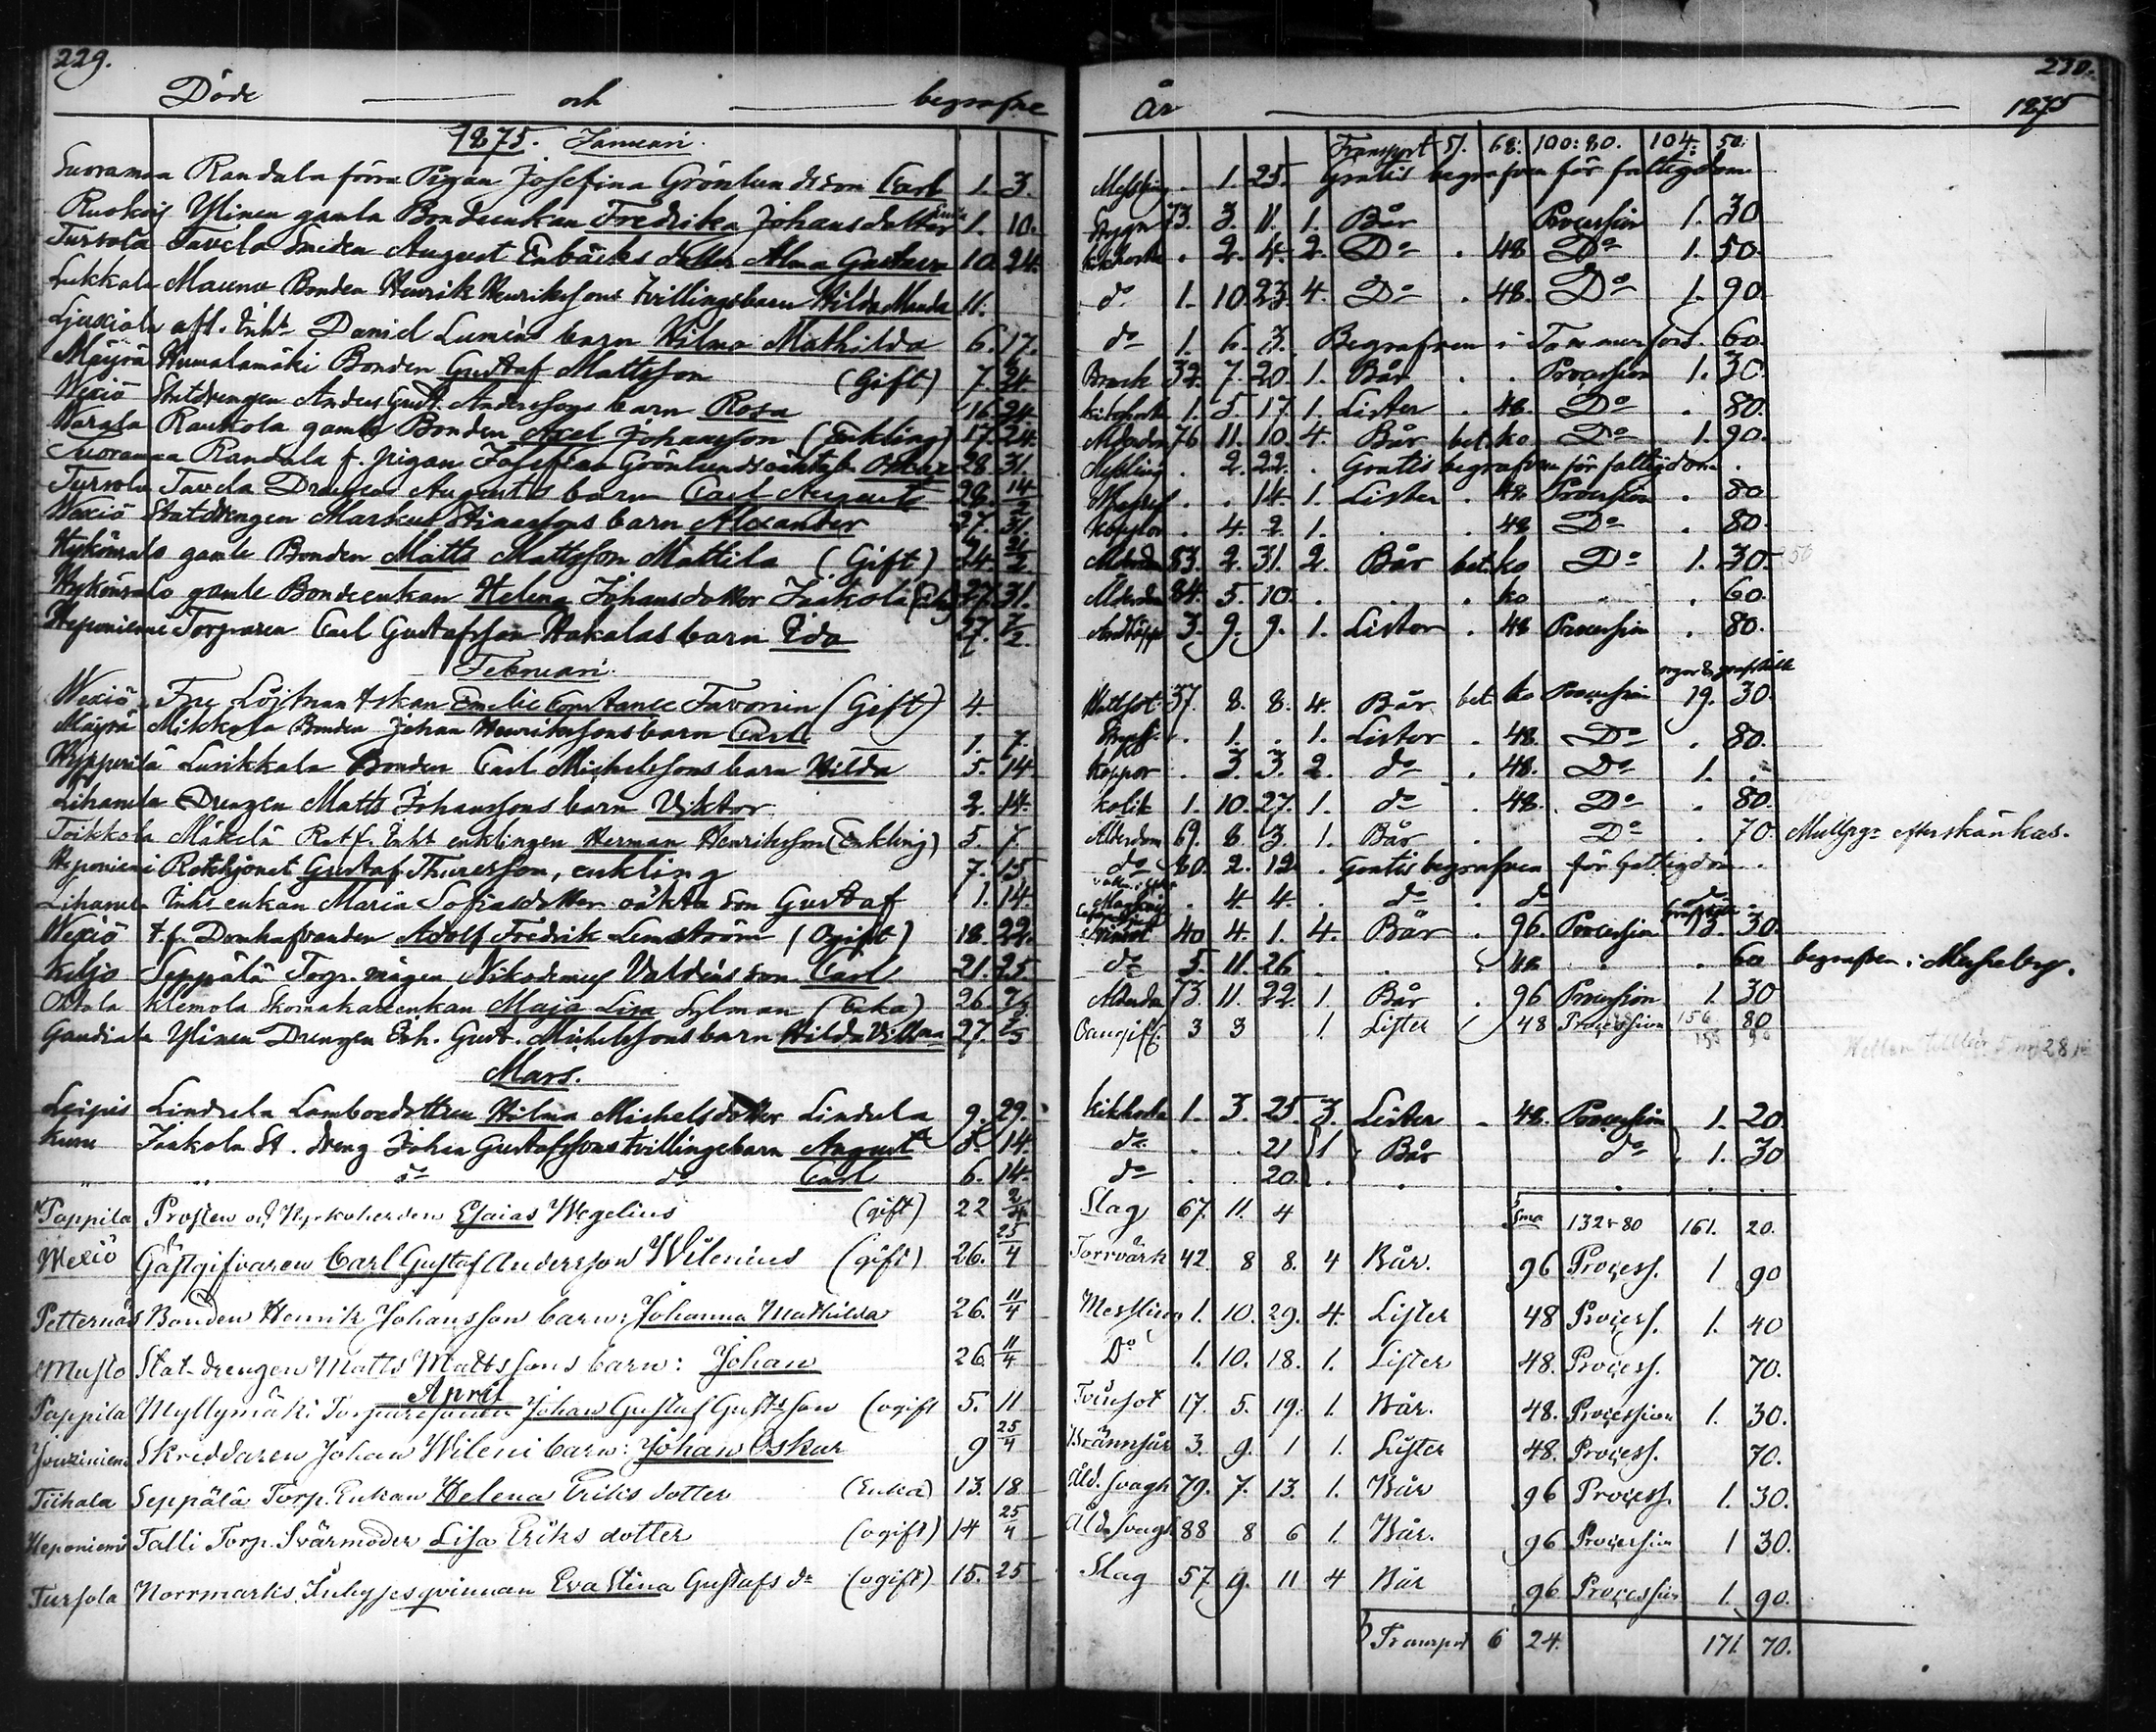 229.
230.
Döde och begrafne
År 1875
1875. Januari.
Transport 51. 68: 100:80. 104: 50:
Suoramaa Randala förra Pigan Josefina Grönlunds son Carl 1. 3. Messling . 1. 25. Gratis begrafven för fattigdom
Ruokois Ylinen gamla Bondeenkan Fredrika Johansdotter Enka 1. 10. 73. 3. 11. 1. Bår Procession 1. 30
Tursola Tavela Smeden August Enbäcks dotter Alma Gustava 10. 24. Kikhosta . 2. 4. 2. Do . 48 Do 1. 50.
Lukkala Bonden Henrik Henrikssons tvillingsbarn Hilda Manda 11. do 1. 10. 23. 4. Do . 48. Do 1. 90.
afl. Inhs Daniel Lumèns barn Hilma Mathilda 6. 17. do 1. 6. 3. Begrafven i Tammerfors. 60.
Mäyrä Humalamäki Bonden Gustaf Mattsson (Gift) 7. 24 Brock 32. 7. 20. 1. Bår . . Procession 1. 30.
Wexiö Statdrengen Anders Gust. Anderssons barn Rosa 16. 24 Kikhosta 1. 5. 17. 1. Lister . 48. Do . 80.
Warala Rauhola gamle Bonden Axel Johansson (Enkling) 17. 24. Ålderdom 76 11. 10. 4. Bår bet. ko Do 1. 90.
Suoramaa Randala f. pigan Josefina Grönlunds oäkta b. Oskar 28. 31. Messling . 2. 22. . Gratis begrafven för fattigdom .
Tursola Tavela Drengen Augusts barn Carl August 28. 14/2 . . 14. 1. Lister . 48 Procession . 80
Wexiö Statdrengen Markus barn Alexander 27. 31. Koppor . 4. 2. 1. . . 48 Do . 80.
gamle Bonden Matts Mattsson Mattila (Gift) 24. 21/2 Ålderdom 83. 2. 31. 2. Bår bet. ko Do 1. 30.
gamle Bondeenkan Helena Johansdotter Jaakola (Enka) 27. 31. Ålderdom 84. 5. 10. . . . ko . . 60.
Heponiemi Torparen Carl Gustafsson Hakalas barn Ida 27. 7/2. 3. 9. 9. 1. Lister . 48 Procession . 80.
Februari
Wexiö Fru Löjtnantskan Emelie Constance Favorin (Gift) 4. 37. 8. 8. 4. Bår bet. ko Procession 19. 30.
Mäyrä Mikkola Bonden Johan Henrikssons barn Carl 1. 7. . 1. . 1. Lister . 48. Do . 80.
Lusikkala Bonden Carl Michelssons barn Hilda 5. 14 Koppor . 3. 3. 2. do . 48. Do 1. .
Lihamela Drengen Matts Johanssons barn Viktor 2. 14. kolik 1. 10. 27. 1. do . 48. Do . 80.
Toikkola Mäkelä Rotf. Inhs enklingen Herman Henriksson (Enkling) 5. 7 Ålderdom 69. 8 3. 1. Bår . Do . 70. Mullpgr efterskänkas.
Heponiemi Rotehjonet Gustaf Thuresson, enkling 7. 15 do 60. 2. 12. . Gratis begrafven för fattigdom .
Inhs enkan Maria Sofiasdotter oäkta son Gustaf 1. 14. . 4 4. do . do do .
Wexiö Adolf Fredrik Lemström (Ogift) 18. 22. 40 4. 1. 4. Bår . 96. Procession 13. 30.
Keljo Seppälä Torp. mågen Nikodemus Valdéns son Carl 21. 25 do 5. 11. 26 . . 48 . . 60 begrafven i
Ottola Klemola Skomakareenkan Maja Lisa Sylman (Enka) 26 7/3. Ålderdom 73. 11. 22. 1. Bår . 96 Procession 1. 30
Ylinen Drengen Erh. Gust. Michelssons barn Hilda Vilhma 27. 2/5 3 3 1. Lister 48 Procession 80
Mars.
Leipis Lindula Lamboedottren Hilma Michelsdotter Lindula 9. 29. kikhosta 1. 3. 25. 3. Lister . 48. Procession 1. 20.
Kuru Jaakola St. dreng Johan Gustafssons tvillingebarn August 5. 14. do . . 21 1 Bår do 1. 30
" " do do Carl 6. 14. do . . 20. . . . .
Pappila Prosten och Kyrkoherden Esaias Wegelius (gift) 22 2/4 Slag 67. 11. 4 Sma 132 80 161. 20.
Wexiö Gästgifvaren Carl Gustaf Andersson Wilenius (gift) 26. 25/4 Torrvärk 42. 8 8. 4 Bår. 96 Process. 1 90
Petternäs Bonden Henrik Johansson barn: Johanna Mathilda 26. 11/4 Messling 1. 10. 29. 4. Lister 48 Process. 1. 40
Musto Stat-drengen Matts Mattssons barn: Johan 26. 11/4 Do 1. 10. 18. 1. Lister 48. Process. 70.
April
Pappila Myllymäki Torparesonen Johan Gustaf Gustsson (ogift 5. 11 Tvinsot 17. 5. 19. 1. Bår. 48. Procession 1. 30.
Skreddaren Johan Wileni barn: Johan Oskar 9 25/4 Brännsår 3. 9. 1 1. Lister 48. Process. 70.
Tiihala Seppälä Torp. Enkan Helena Eriks dotter (Enka) 13. 18. Åld. svagh 79. 7. 13. 1. Bår 96 Process. 1. 30.
Heponiemi Talli Torp. Svärmoder Lisa Eriks dotter (ogift) 14 25/4 Åld. svagh 88 8 6 1. Bår. 96 Procession 1 30.
Tursola Norrmarks Inhyses qvinnan Eva Stina Gustafs dr (ogift) 15. 25 Slag 57 9. 11 4 Bår 96 Procession 1. 90.
Transport 6 24. 171. 70.